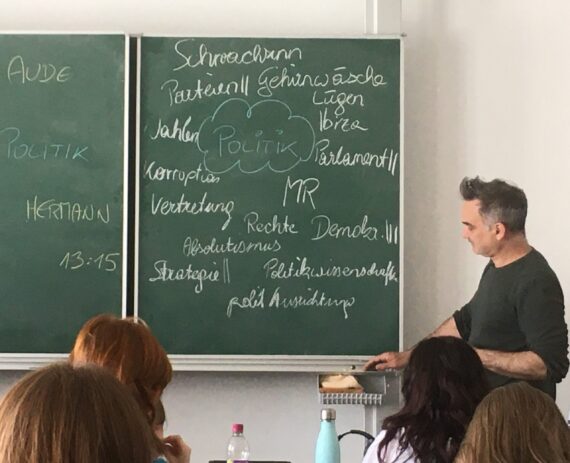 AUDE
POLITIK
HERMANN
13:15
Schwachsinn
Parteien|| Gehirnwäsche
Lügen
Ibiza
Wahlen
POLITIK
Parlament||
Korruption
MR
Vertretung
Rechte Demokr. |||
Absolutismus
Strategie|| Politikwissenschaft
polit Ausrichtung